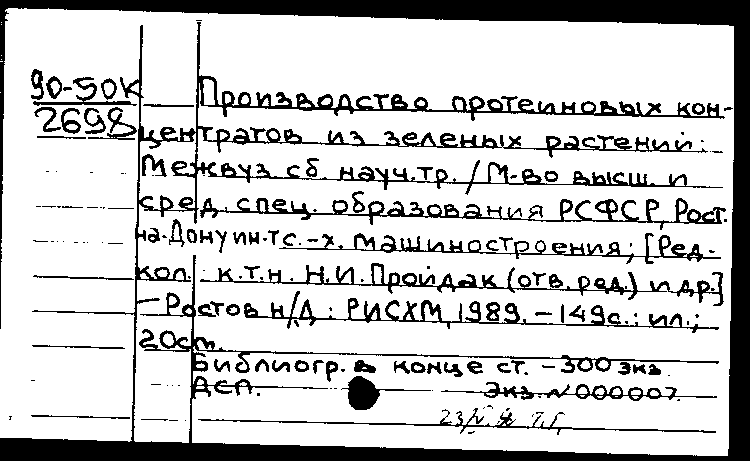 90-50К
2698
Производство протеиновых кон-
центратов из зеленых растений:
Межвуз сб. науч.тр. / М-во высш. и
сред. спец. образования РСФСР, Рост.
на-Дону ин-т с.-х. машиностроения; [Ред-
кол.: к.т.н. Н.И. Пройдак (отв. ред.) и др.]
– Ростов н/Д : РИСХМ, 1989. – 149с.: ил.;
20см.
Библиогр. в конце ст. – 300 экз.
ДСП. Экз. N 000007.